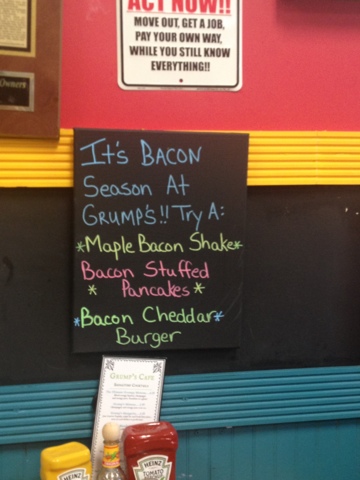 ACT NOW!!
MOVE OUT, GET A JOB,
PAY YOUR OWN WAY,
WHILE YOU STILL KNOW
EVERYTHING!!
Owners
It's BACON
Season At
GRUMP'S!! Try A:
*Maple Bacon Shake*
Bacon Stuffed
* Pancakes *
*Bacon Cheddar*
Burger
GRUMP'S CAFE
HEINZ
HEINZ
TOMATO